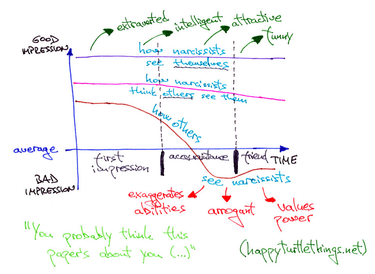 extraverted intelligent attractive funny
GOOD
IMPRESSION
how narcissists
see themselves
how narcissists
think others see them
how others
average
first
impression
acquaintance
friend
TIME
BAD
IMPRESSION
see narcissists
exaggerates
abilities
arrogant
values
power
"You
probably think this
paper's about you (...)"
(happyturtlethings.net)